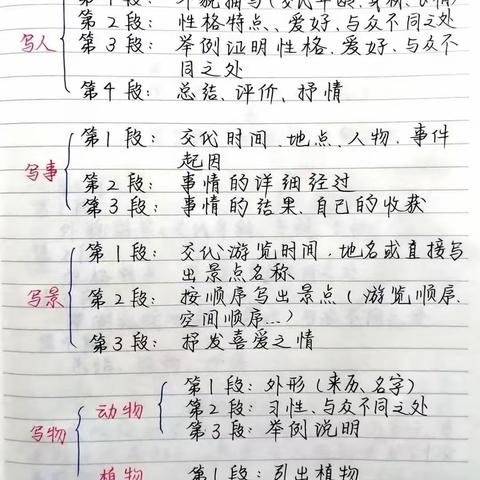 第1段：外貌描写（交代年龄、身材、长相）
第2段：性格特点、爱好、与众不同之处
写人 第3段：举例证明性格、爱好、与众不
同之处
第4段：总结、评价、抒情
第1段：交代时间、地点、人物、事件
起因
写事 第2段：事情的详细经过
第3段：事情的结果、自己的收获
第1段：交代游览时间、地名或直接写
出景点名称
写景 第2段：按顺序写出景点（游览顺序、
空间顺序…）
第3段：抒发喜爱之情
第1段：外形（来历、名字）
动物 第2段：习性、与众不同之处
写物 第3段：举例说明
植物 第1段：引出植物